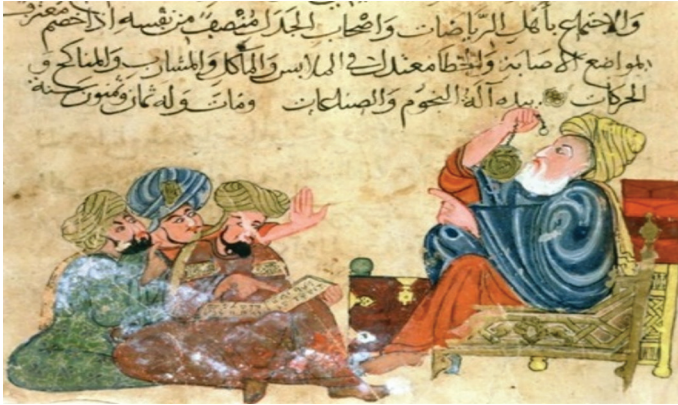 والاجتماع بأهل الرياضات واصحاب الجدل منصف من نفسه اذا خصم معترف
بمواضع الاصابة والخطا معتدل في الملابس والمآكل والمشارب والمناكح و
الحركات بيده آلة النجوم والصناعات ومات وله ثمان سنة